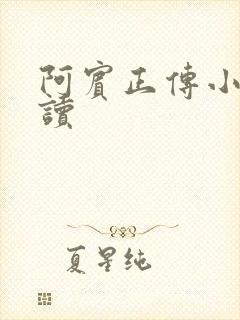 阿賓正傳小
讀
夏星纯